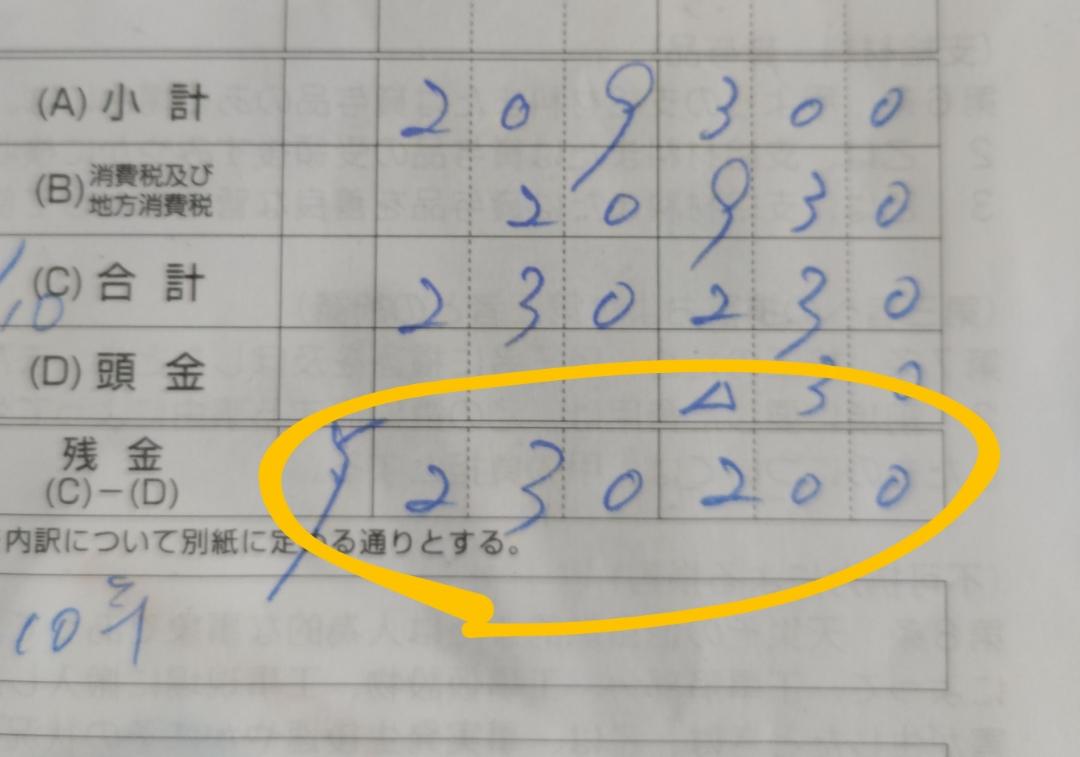 (A) 小計 209300
(B) 消費税及び地方消費税 20930
(C) 合計 230230
(D) 頭金 △30
残金 (C)-(D) ¥230200
内訳について別紙に定める通りとする。
10